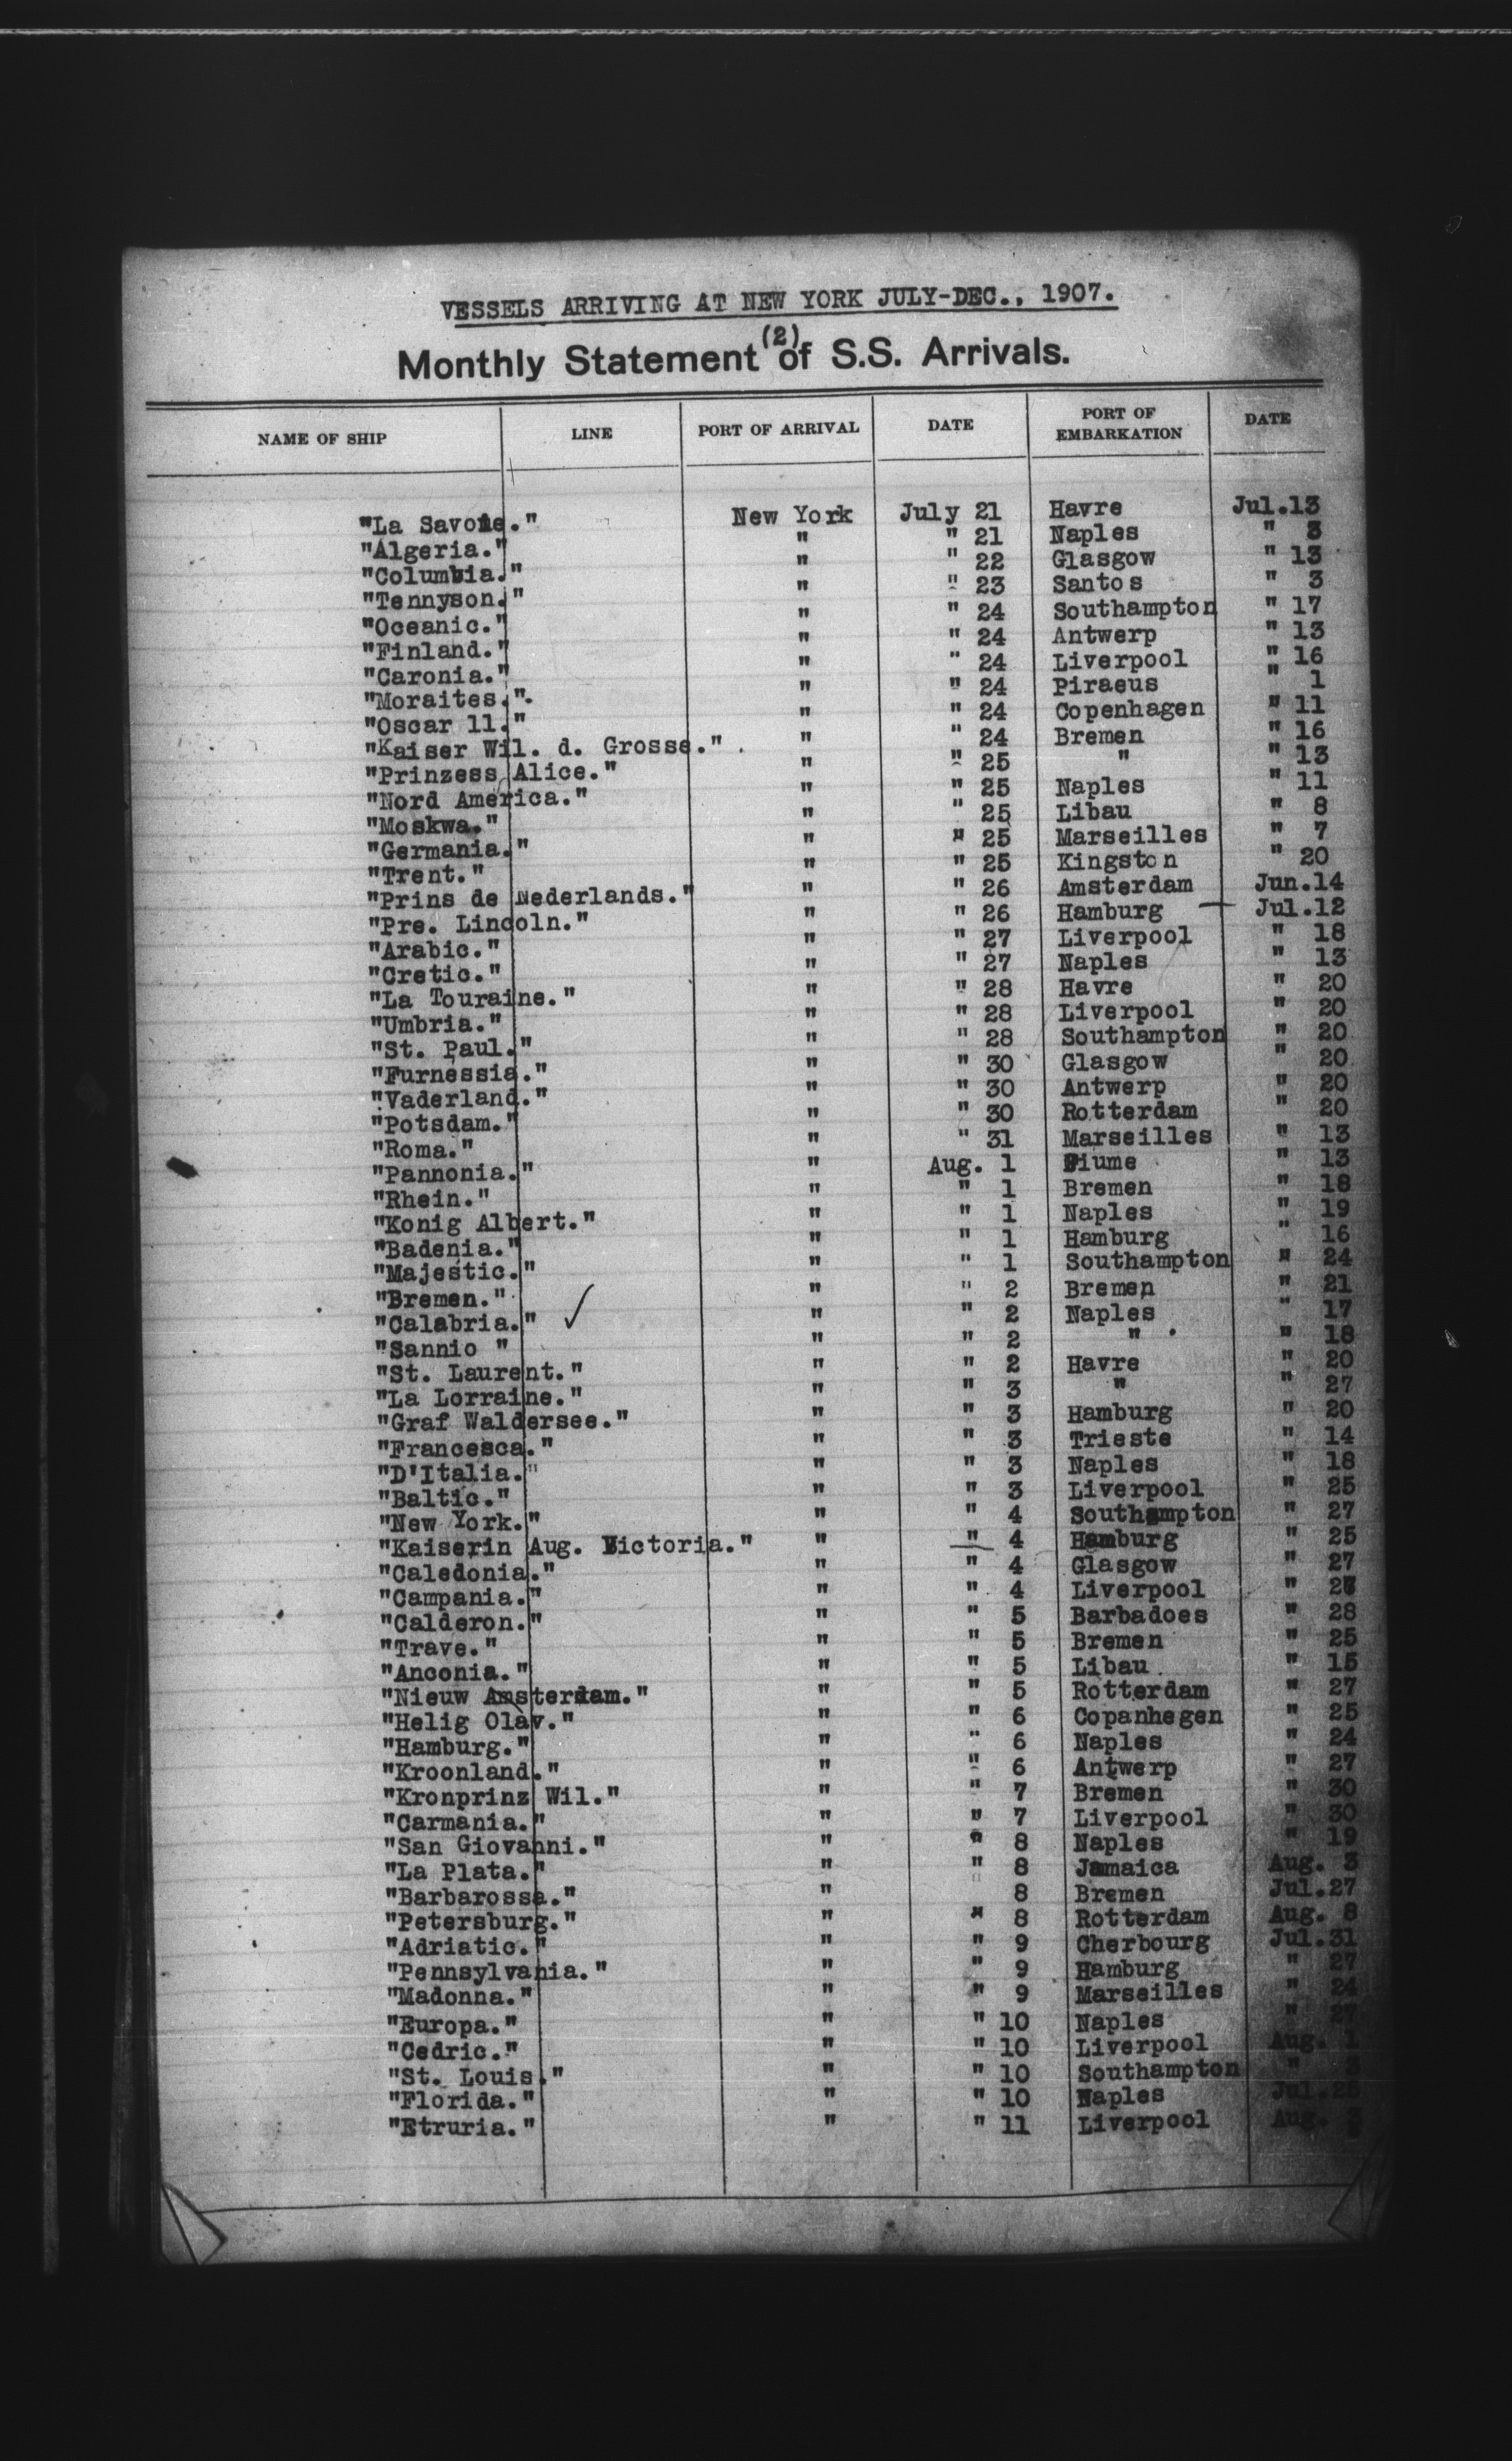 VESSELS ARRIVING AT NEW YORK JULY-DEC., 1907.
(2)
Monthly Statement of S.S. Arrivals.
NAME OF SHIP LINE PORT OF ARRIVAL DATE PORT OF EMBARKATION DATE
"La Savoie." New York July 21 Havre Jul.13
"Algeria." " " 21 Naples " 3
"Columbia." " " 22 Glasgow " 13
"Tennyson." " " 23 Santos " 3
"Oceanic." " " 24 Southampton " 17
"Finland." " " 24 Antwerp " 13
"Caronia." " " 24 Liverpool " 16
"Moraites.". " " 24 Piraeus " 1
"Oscar 11." " " 24 Copenhagen " 11
"Kaiser Wil. d. Grosse." " " 24 Bremen " 16
"Prinzess Alice." " " 25 " " 13
"Nord America." " " 25 Naples " 11
"Moskwa." " " 25 Libau " 8
"Germania." " " 25 Marseilles " 7
"Trent." " " 25 Kingston " 20
"Prins de Nederlands." " " 26 Amsterdam Jun.14
"Pre. Lincoln." " " 26 Hamburg Jul.12
"Arabic." " " 27 Liverpool " 18
"Cretic." " " 27 Naples " 13
"La Touraine." " " 28 Havre " 20
"Umbria." " " 28 Liverpool " 20
"St. Paul." " " 28 Southampton " 20
"Furnessia." " " 30 Glasgow " 20
"Vaderland." " " 30 Antwerp " 20
"Potsdam." " " 30 Rotterdam " 20
"Roma." " " 31 Marseilles " 13
"Pannonia." " Aug. 1 Fiume " 13
"Rhein." " " 1 Bremen " 18
"Konig Albert." " " 1 Naples " 19
"Badenia." " " 1 Hamburg " 16
"Majestic." " " 1 Southampton " 24
"Bremen." " " 2 Bremen " 21
"Calabria." ✓ " " 2 Naples " 17
"Sannio " " " 2 " " 18
"St. Laurent." " " 2 Havre " 20
"La Lorraine." " " 3 " " 27
"Graf Waldersee." " " 3 Hamburg " 20
"Francesca." " " 3 Trieste " 14
"D'Italia." " " 3 Naples " 18
"Baltic." " " 3 Liverpool " 25
"New York." " " 4 Southampton " 27
"Kaiserin Aug. Victoria." " " 4 Hamburg " 25
"Caledonia." " " 4 Glasgow " 27
"Campania." " " 4 Liverpool " 27
"Calderon." " " 5 Barbadoes " 28
"Trave." " " 5 Bremen " 25
"Anconia." " " 5 Libau " 15
"Nieuw Amsterdam." " " 5 Rotterdam " 27
"Helig Olav." " " 6 Copanhegen " 25
"Hamburg." " " 6 Naples " 24
"Kroonland." " " 6 Antwerp " 27
"Kronprinz Wil." " " 7 Bremen " 30
"Carmania." " " 7 Liverpool " 30
"San Giovanni." " " 8 Naples " 19
"La Plata." " " 8 Jamaica Aug. 3
"Barbarossa." " " 8 Bremen Jul.27
"Petersburg." " " 8 Rotterdam Aug. 8
"Adriatic." " " 9 Cherbourg Jul.31
"Pennsylvania." " " 9 Hamburg " 27
"Madonna." " " 9 Marseilles " 24
"Europa." " " 10 Naples " 27
"Cedric." " " 10 Liverpool Aug. 1
"St. Louis." " " 10 Southampton " 3
"Florida." " " 10 Naples Jul.
"Etruria." " " 11 Liverpool Aug.